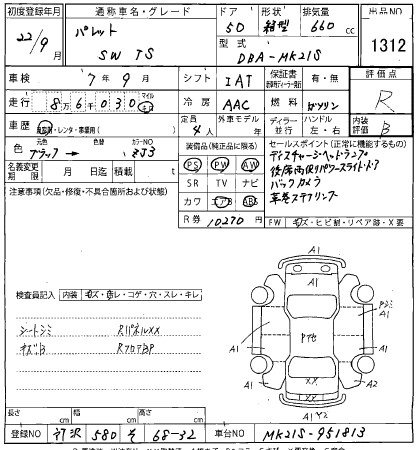 初度登録年月 通称車名・グレード ドア 形状 排気量 出品NO
22/9月 パレット SW TS 5D 箱型 660cc 1312
型式 DBA-MK21S
車検 7年9月 シフト IAT 保証書 有・無 評価点
走行 86,030 マイル キロ 冷房 AAC 燃料 ガソリン R
車歴 自家用・レンタ・事業用( ) 定員 4人 外車モデル 年 ディーラー・並行 ハンドル 左・右 内装評価 B
色 元色 ブラック 色替 カラーNO ZJ3
装備品(純正品に限る) セールスポイント(正常に機能するもの)
名義変更期限 月 日迄 積載 t
PS PW AW
SR TV ナビ
カワ エアB ABS
ディスチャージヘッドランプ
後席両側パワースライドドア
バックカメラ
革巻ステアリング
注意事項(欠品・修復・不具合箇所および状態)
R券 10,270円 FW キズ・ヒビ割・リペア跡・X要
検査員記入 内装 キズ・汚レ・コゲ・穴・スレ・キレ
シートシミ RパネルXX
キズB RフロアBP
A1
A1 A1
A1 A1
XX
A1 A2
A1 Y2
長さ cm 幅 cm 高さ cm
登録NO 所沢 580 そ 68-32 車台NO MK21S-951813